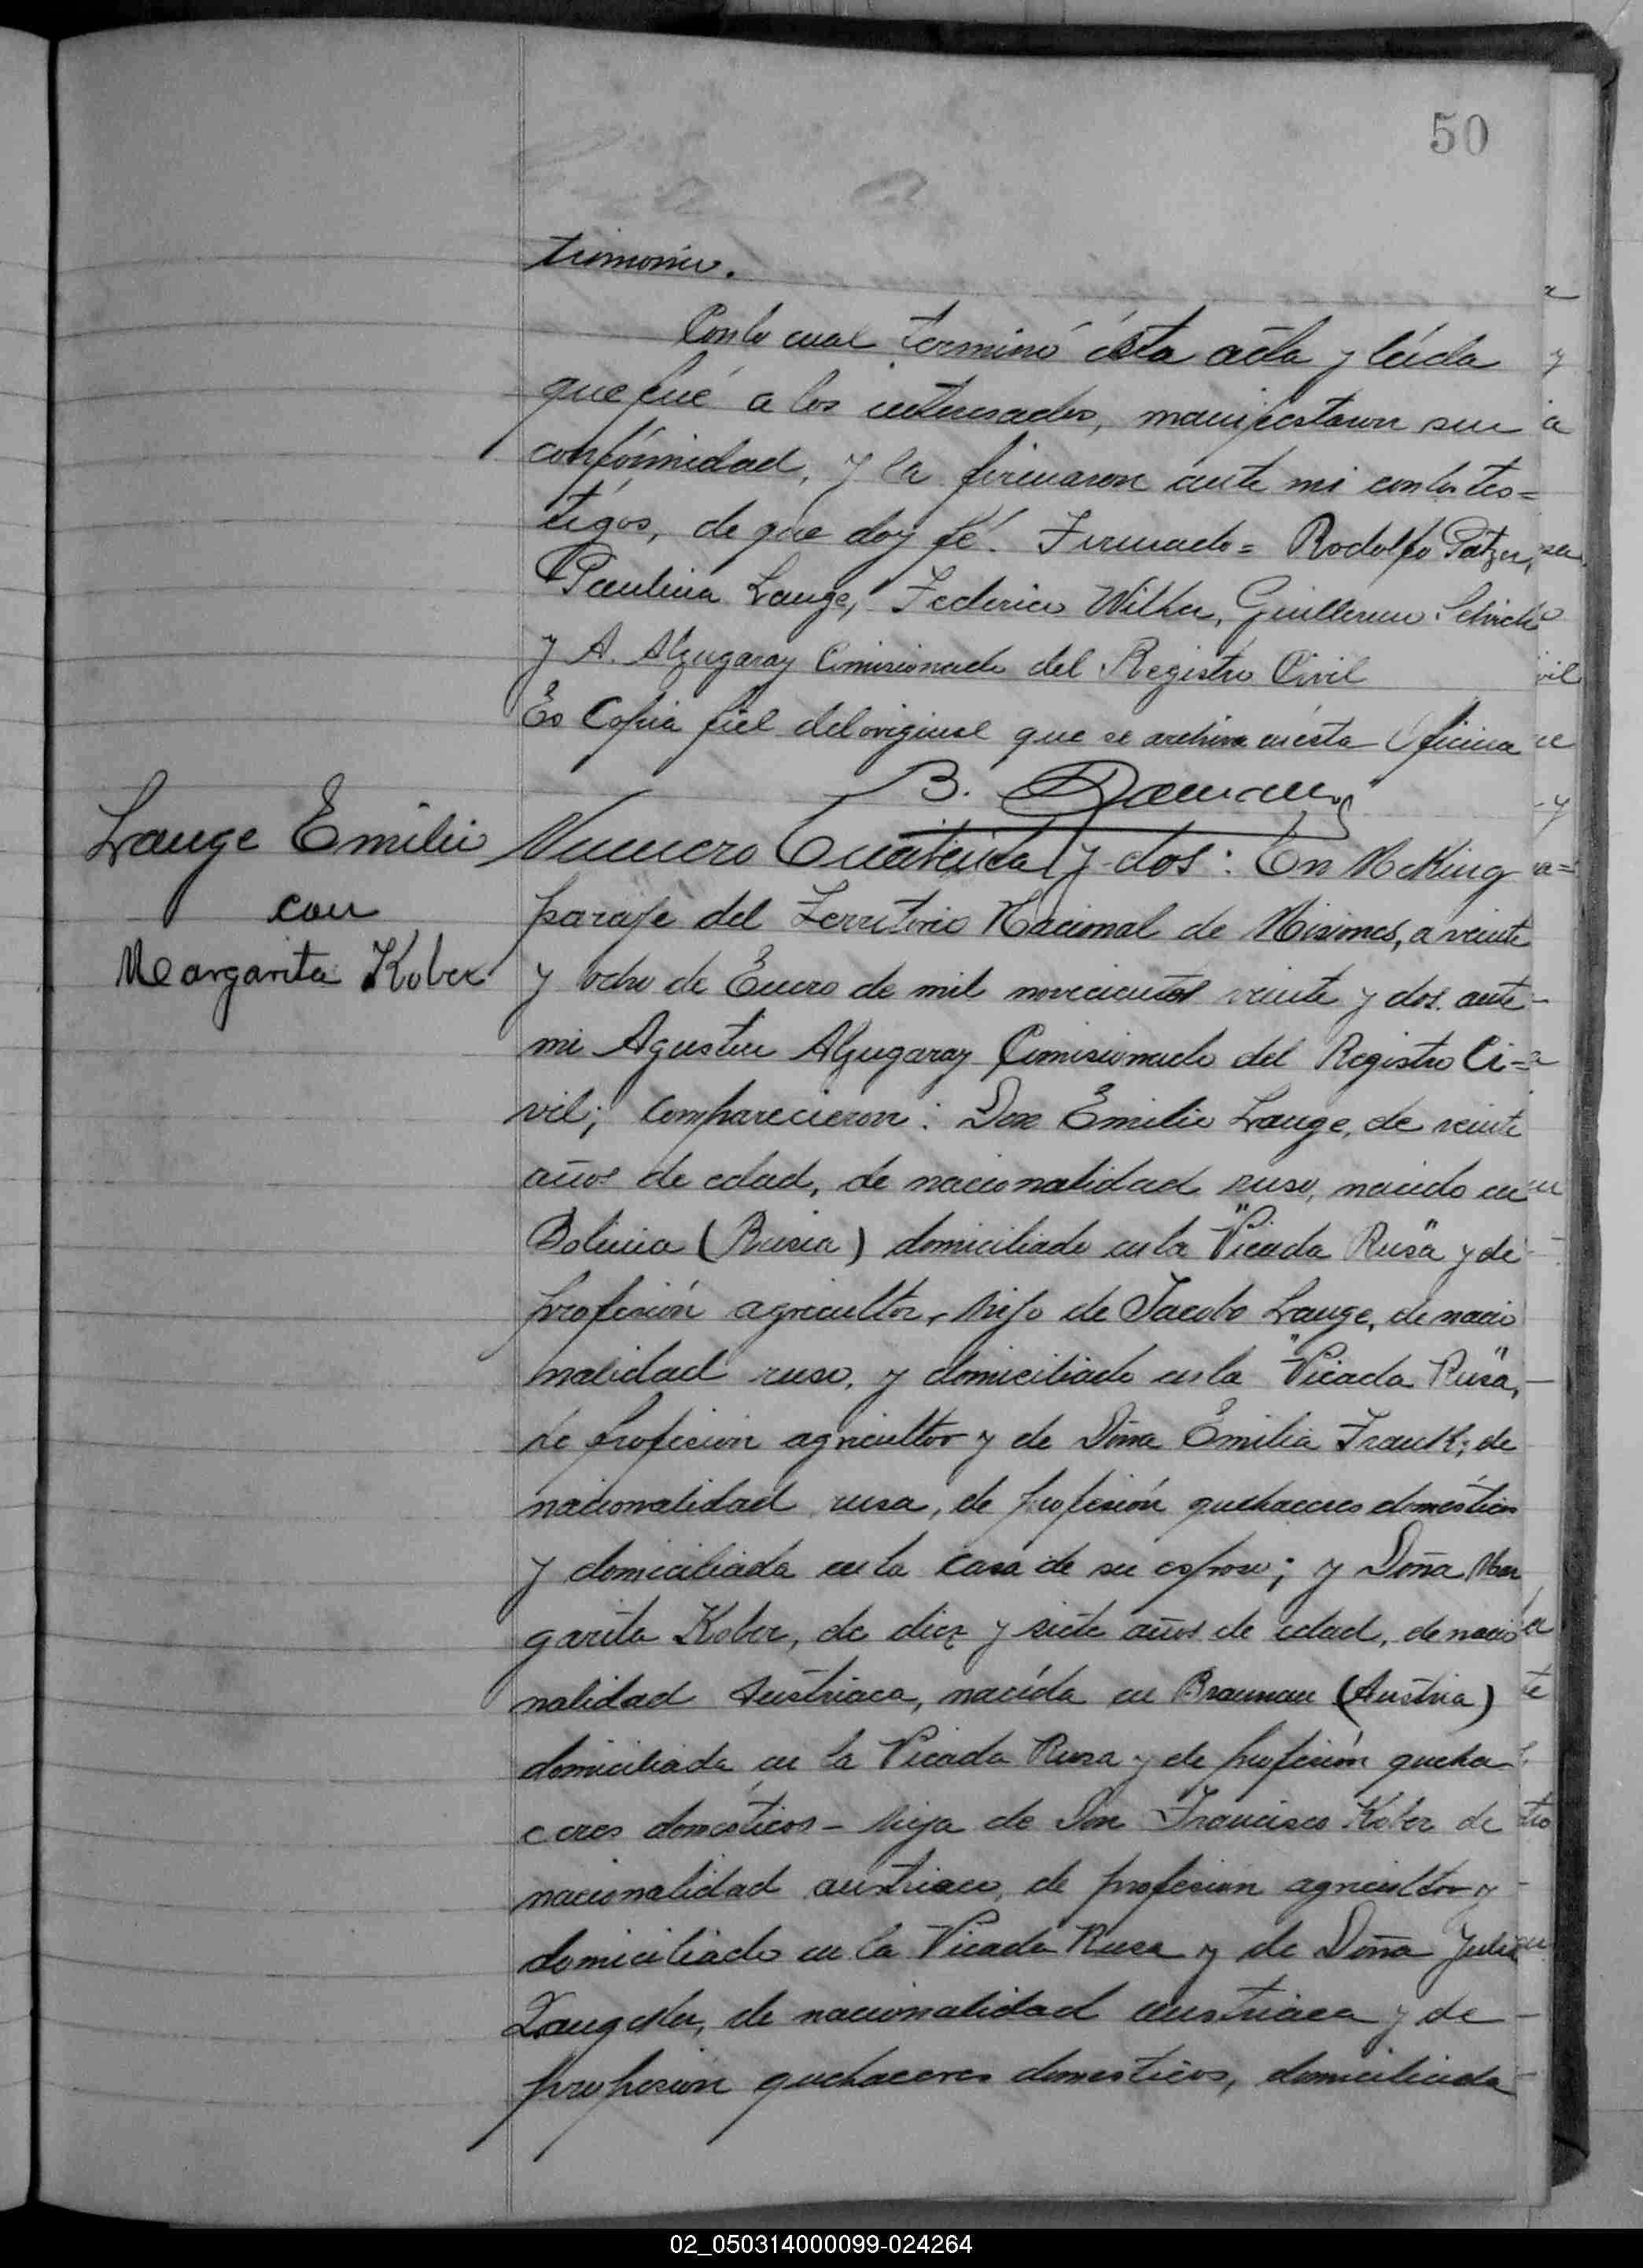 50
trimonio.
Con lo cual terminó ésta acta y leída
que fué a los interesados, manifestaron su
conformidad, y la firmaron ante mi con los tes=
tigos, de que doy fé. Firmado = Rodolfo Patzer,
Paulina Lange, Federico Wilke, Guillermo
y A. Alzugaray Comisionado del Registro Civil
Es Copia fiel del original que se archiva en ésta Oficina
B.
Lange Emilio
con
Margarita Kober
Numero Cuarenta y dos: En McKing
paraje del Territorio Nacional de Misiones, a veinte
y ocho de Enero de mil novecientos veinte y dos. ante
mi Agustin Alzugaray Comisionado del Registro Ci=
vil; comparecieron: Don Emilio Lange, de veinte
años de edad, de nacionalidad ruso, nacido en
Bolinia (Rusia) domiciliado en la "Picada Rusa" y de
profesión agricultor, hijo de Jacobo Lange, de nacio
nalidad ruso, y domiciliado en la "Picada Rusa",
de profesion agricultor y de Doña Emilia Frank; de
nacionalidad rusa, de profesión quehaceres domésticos
y domiciliada en la casa de su esposo; y Doña Mar
garita Kober, de diez y siete años de edad, de nacio
nalidad Austriaca, nacída en Braunau (Austria)
domiciliada en la Picada Rusa y de profesión queha
ceres domésticos - hija de Don Francisco Kober de
nacionalidad austriaco, de profesion agricultor y
domiciliado en la Picada Rusa y de Doña Julia
de nacionalidad austriaca y de
profesion quehaceres domesticos, domiciliada
02_050314000099-024264